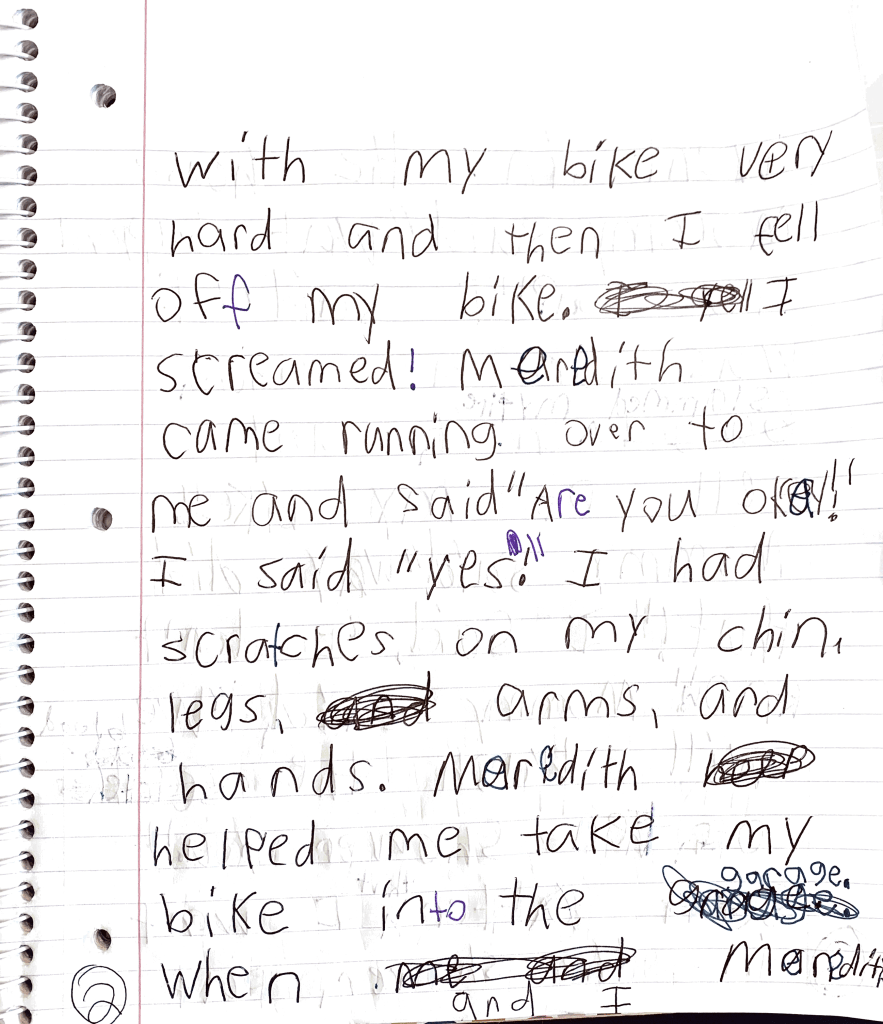 with my bike very
hard and then I fell
off my bike. I
screamed! Meredith
came running over to
me and said "Are you okay!"
I said "yes!" I had
scratches on my chin,
legs, arms, and
hands. Meredith
helped me take my
bike into the garage.
When Meredith
and I
2